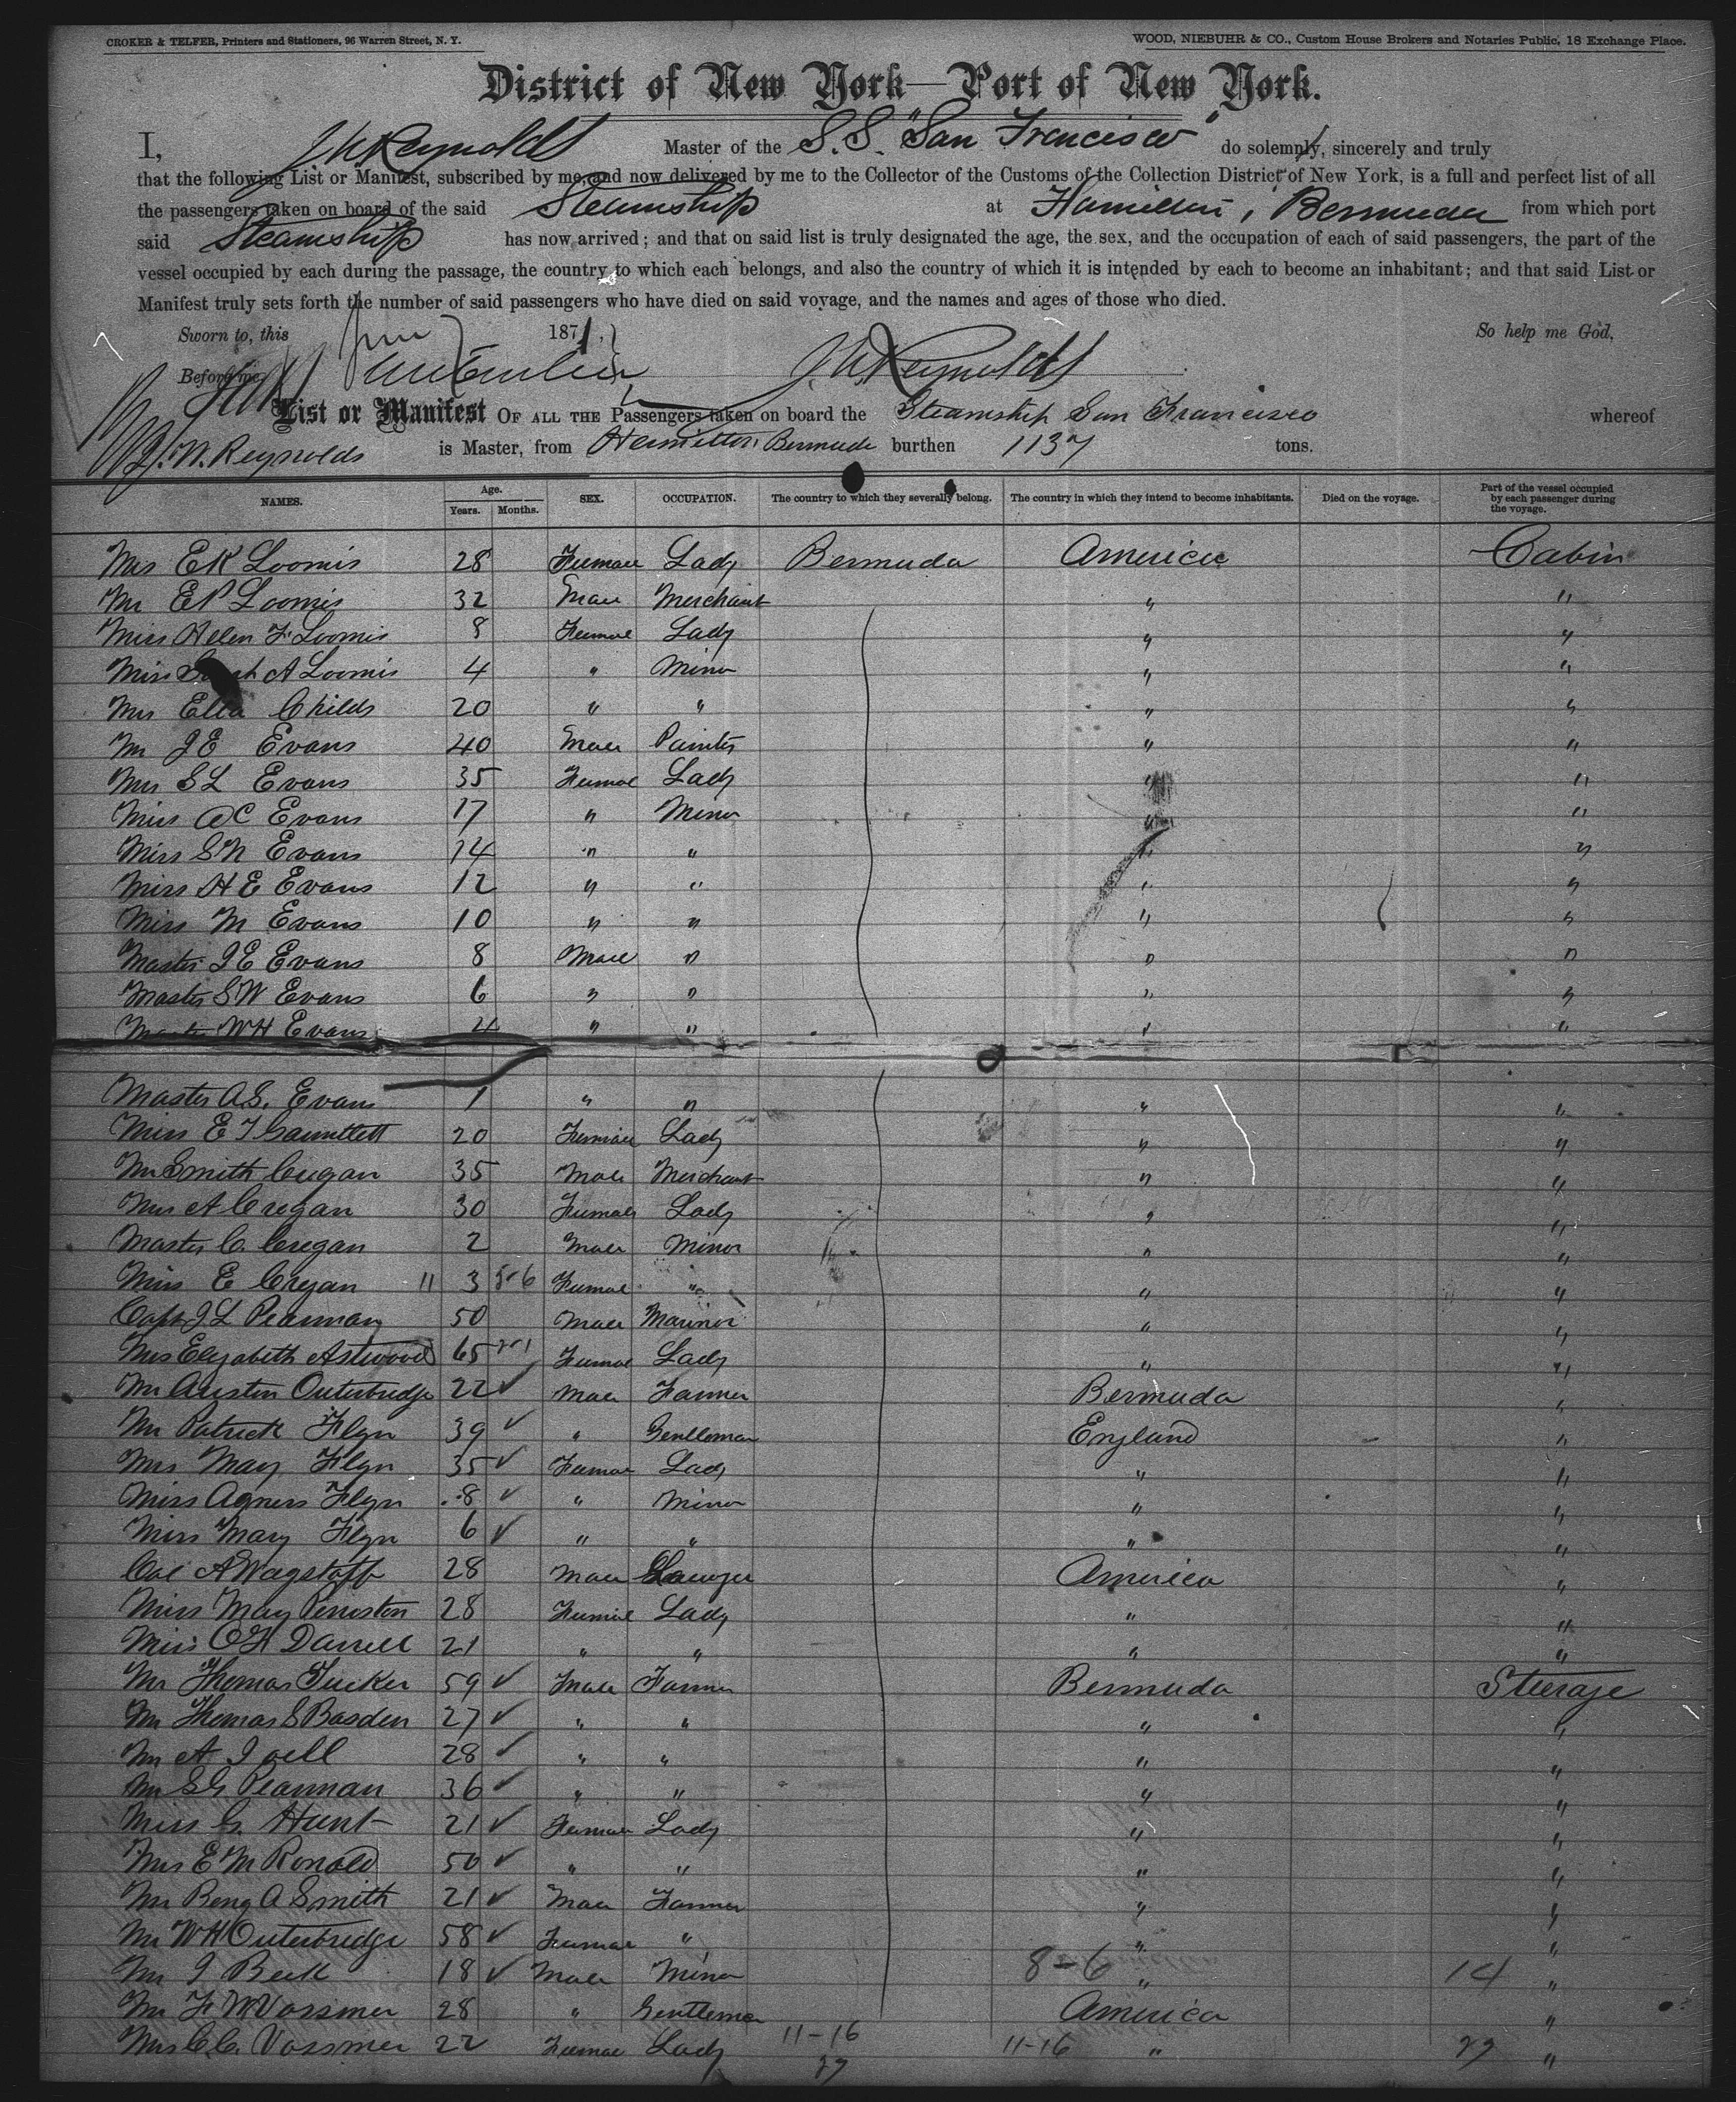 CROKER & TELFER, Printers and Stationers, 96 Warren Street, N. Y.
WOOD, NIEBUHR & CO., Custom House Brokers and Notaries Public, 18 Exchange Place.
District of New York—Port of New York.
I, J. W. Reynolds Master of the S.S. "San Francisco" do solemnly, sincerely and truly
that the following List or Manifest, subscribed by me, and now delivered by me to the Collector of the Customs of the Collection District of New York, is a full and perfect list of all
the passengers taken on board of the said Steamship at Hamilton, Bermuda from which port
said Steamship has now arrived; and that on said list is truly designated the age, the sex, and the occupation of each of said passengers, the part of the
vessel occupied by each during the passage, the country to which each belongs, and also the country of which it is intended by each to become an inhabitant; and that said List or
Manifest truly sets forth the number of said passengers who have died on said voyage, and the names and ages of those who died.
Sworn to, this June 7 1871, So help me God,
Before me, J. W. Reynolds
List or Manifest OF ALL THE Passengers taken on board the Steamship San Francisco whereof
J. W. Reynolds is Master, from Hamilton Bermuda burthen 1137 tons.
NAMES. Age. Years. Months. SEX. OCCUPATION. The country to which they severally belong. The country in which they intend to become inhabitants. Died on the voyage. Part of the vessel occupied by each passenger during the voyage.
Mrs E K Loomis 28 Female Lady Bermuda America Cabin
Mr E P Loomis 32 Male Merchant " "
Miss Helen F. Loomis 8 Female Lady " "
Miss A Loomis 4 " Minor " "
Mrs Ella Childs 20 " " " "
Mr J E Evans 40 Male Painter " "
Mrs S L Evans 35 Female Lady " "
Miss A C Evans 17 " Minor " "
Miss S N Evans 14 " " " "
Miss H E Evans 12 " " " "
Miss M Evans 10 " " " "
Master J E Evans 8 Male " " "
Master S W Evans 6 " " " "
Master W H Evans 4 " " " "
Master A S. Evans 1 " " " "
Miss E T Gauntlett 20 Female Lady " "
Mr Smith Cregan 35 Male Merchant " "
Mrs A Cregan 30 Female Lady " "
Master C. Cregan 2 Male Minor " "
Miss E Cregan 11 3 5-6 Female " " "
Capt J L Pearman 50 Male Mariner " "
Mrs Elizabeth Astwood 65 2-1 Female Lady " "
Mr Austin Outerbridge 22 ✓ Male Farmer Bermuda "
Mr Patrick Flyn 39 ✓ " Gentleman England "
Mrs May Flyn 35 ✓ Female Lady " "
Miss Agness Flyn 8 ✓ " Minor " "
Miss Mary Flyn 6 ✓ " " " "
Col A Wagstaff 28 Male Lawyer America "
Miss May Peniston 28 Female Lady " "
Miss C H Darrell 21 " " " "
Mr Thomas Tucker 59 ✓ Male Farmer Bermuda Steerage
Mr Thomas S Basden 27 ✓ " " " "
Mr A Joell 28 ✓ " " " "
Mr S G Pearman 36 ✓ " " " "
Miss G. Hunt 21 ✓ Female Lady " "
Mrs E M Ronald 50 ✓ " " " "
Mr Benj A Smith 21 ✓ Male Farmer " "
Mr W H Outerbridge 58 ✓ Female " " "
Mr J Beck 18 ✓ Male Minor 8-6 " 14 "
Mr F W Vossmer 28 " Gentleman America "
Mrs C C. Vossmer 22 Female Lady 11-16 11-16 " 27 "
27